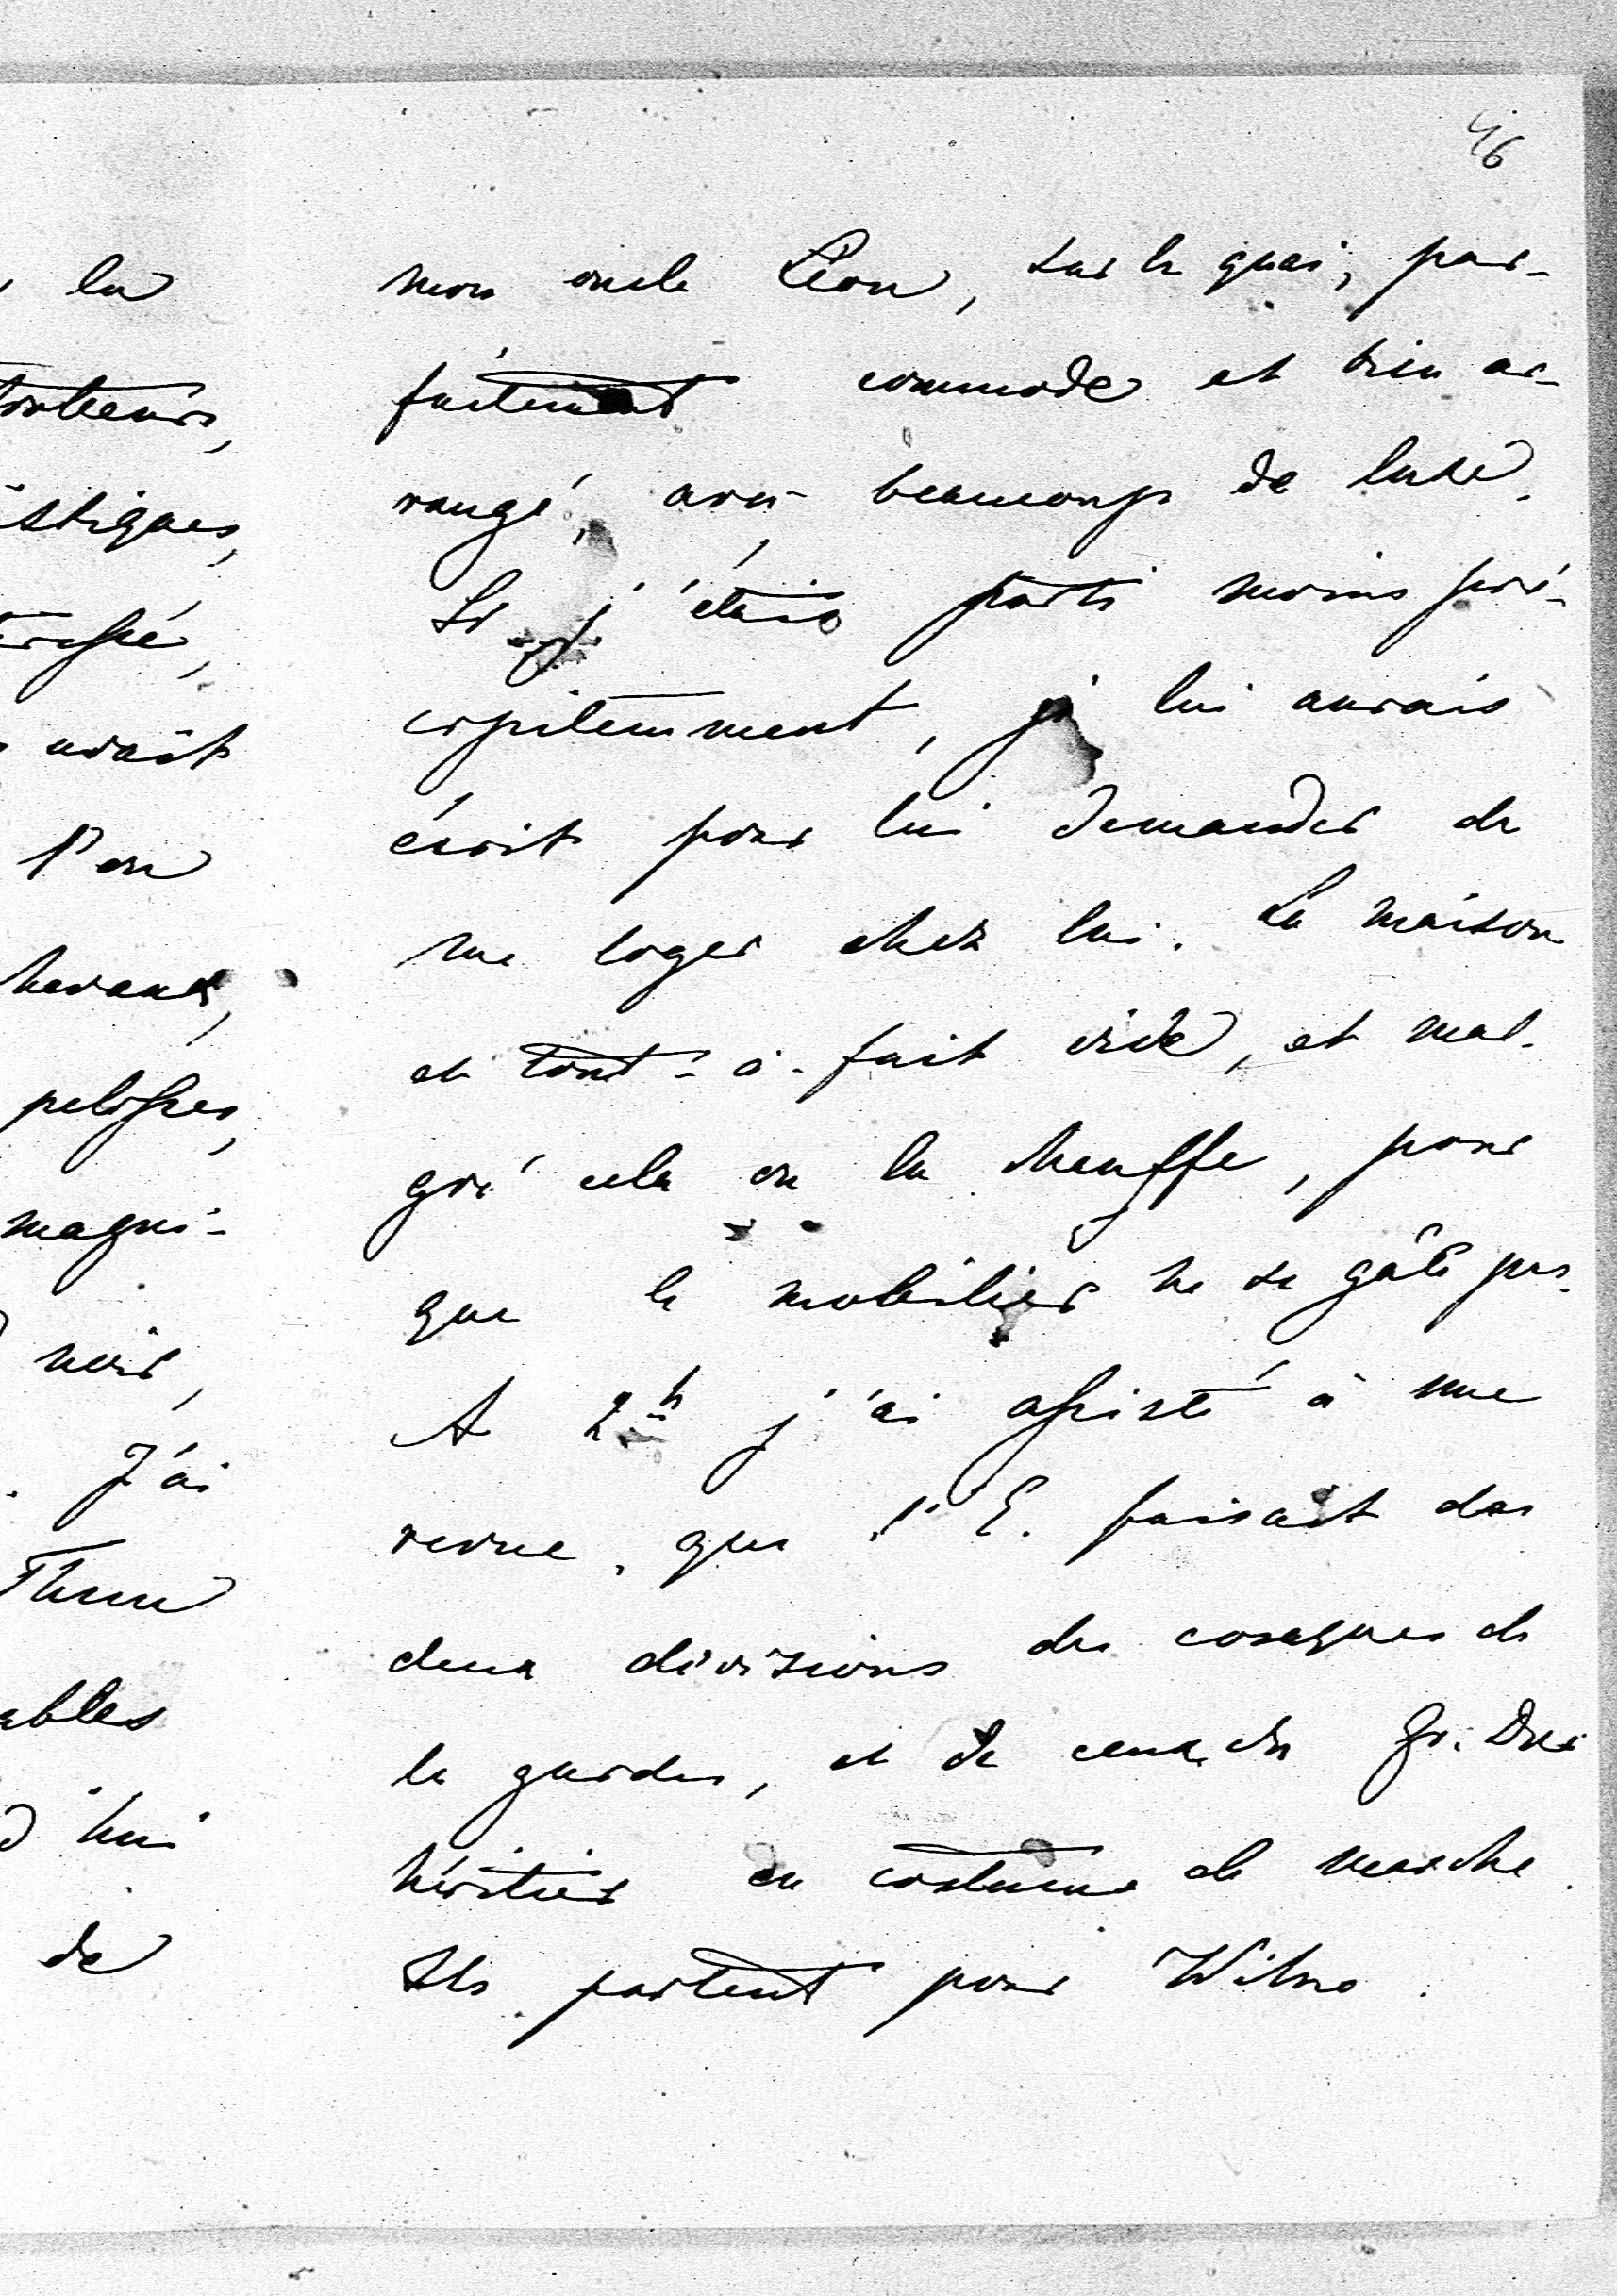 46
mon oncle Léon, sur le quai, par-
faitement commode et bien ar-
rangé, avec beaucoup de luxe.
Si j'étais parti moins pré-
cipitemment, je lui aurais
écrit pour lui demander de
me loger chez lui. La maison
est tout-à-fait vide, et mal-
gré cela on la chauffe, pour
que le mobilier ne se gâte pas.
A 2h j'ai assisté à une
revue, que l'E. faisait des
deux divisions des cosaques de
la garde, et de ceux du Gr. Duc
héritier en costume de marche.
Ils partent pour Wilno.
la
porteurs,
istiques,
avait
l'on
chevaux,
pelisses,
magni-
noir,
J'ai
Thun
ables
d'hui
de